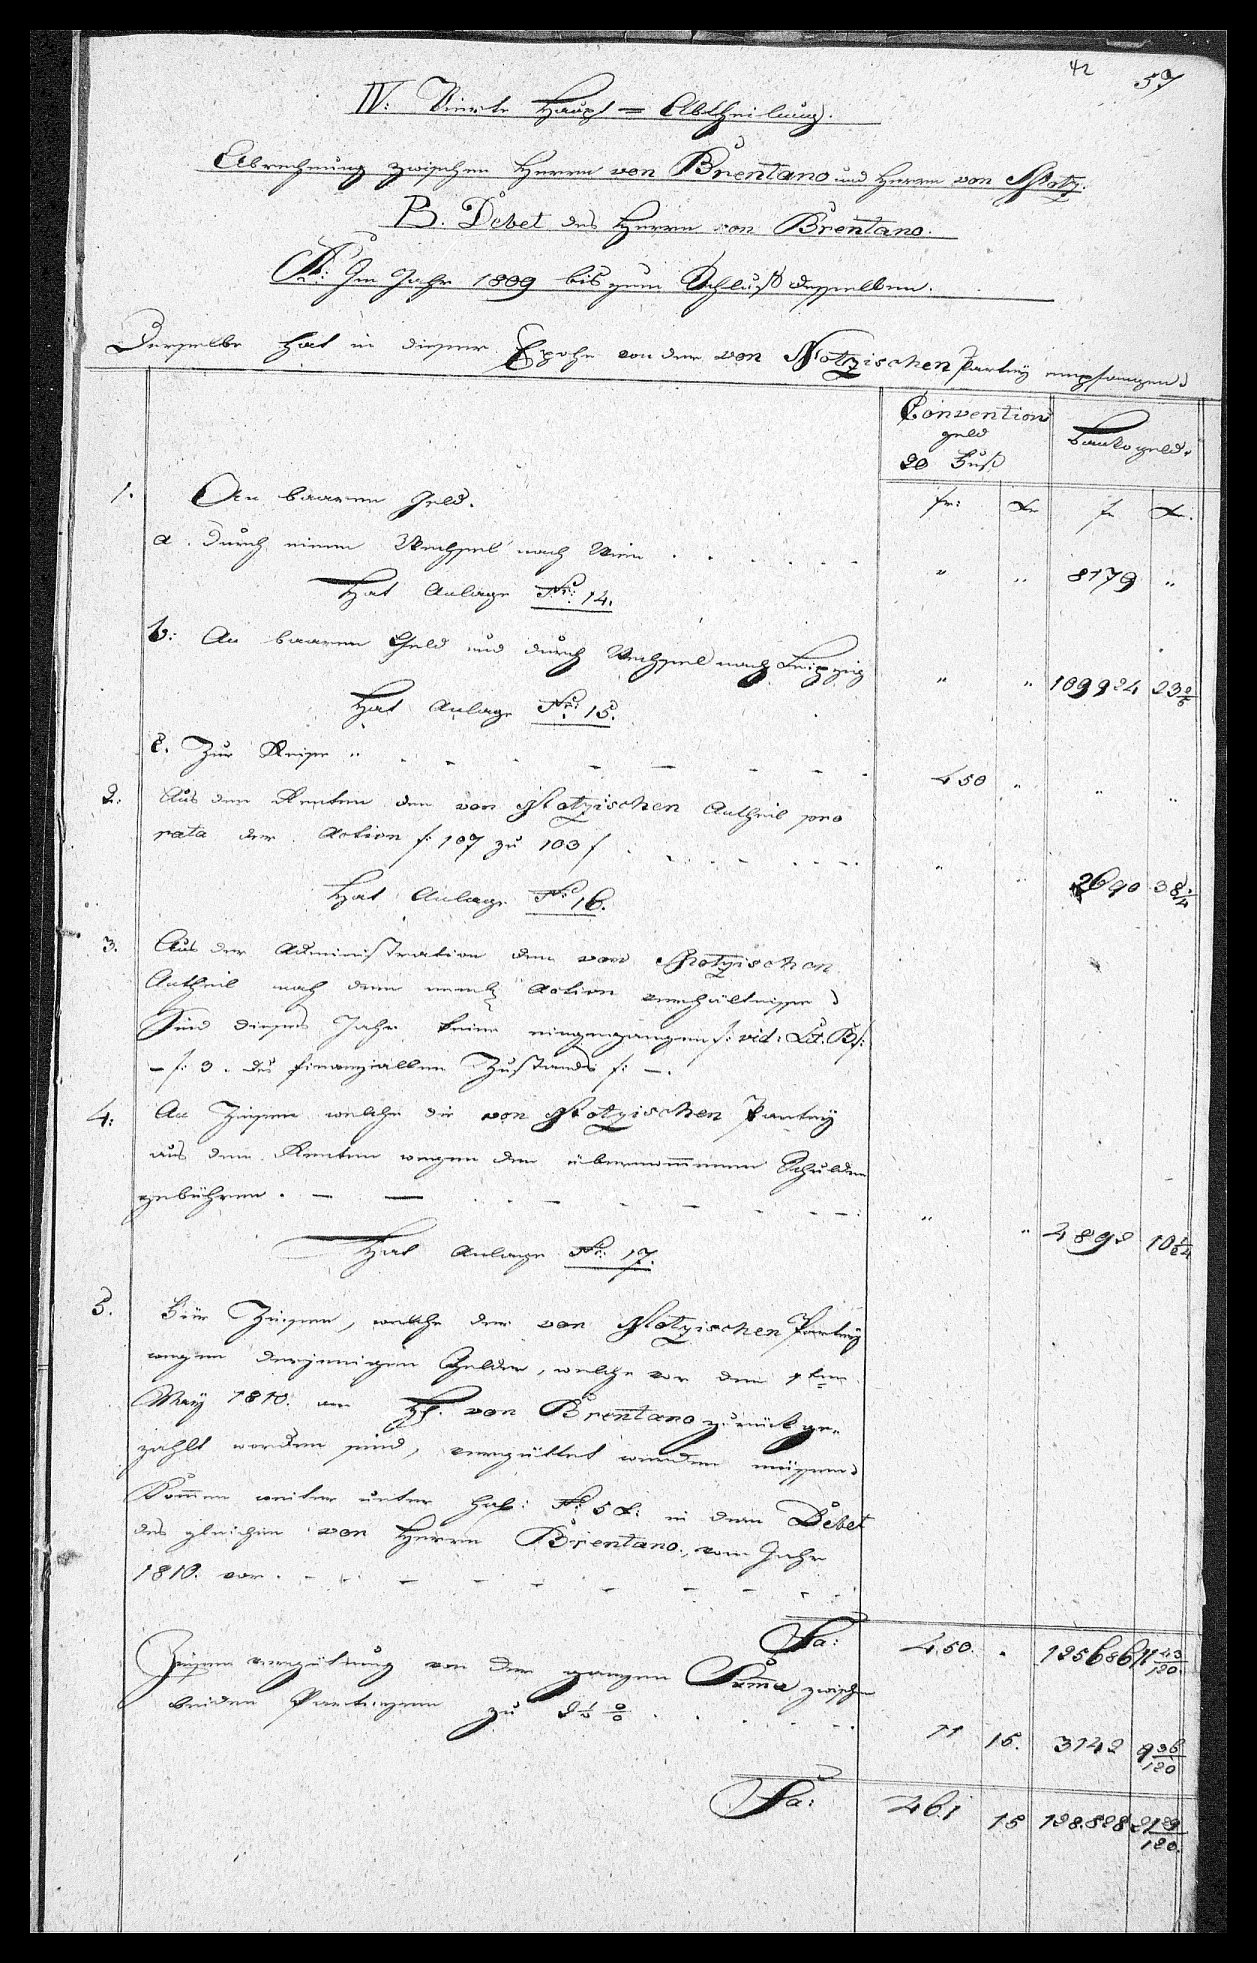 42 57
IV: Vierte Haupt = Abtheilung.
Abrechnung zwischen Herrn von Brentano und Herrn von Motz.
B. Debet des Herrn von Brentano.
A: Im Jahr 1809 bis zum Schluß desselben.
Derselbe hat in dieser Epoche von der von Motzischen Partey empfangen
Convention
geld Bankogeld.
20 Fuß
1. An baarem Geld. fr: Xr fr Xr.
a. durch einen Wechsel nach Wien . . . . . . " " 8179 "
Hat Anlage No: 14.
b: An baarem Geld und durch Wechsel nach Leipzig " " 109924 23
Hat Anlage No: 15.
c. Zur Reise " . . . 450 " " "
2. Aus den Renten den von Motzischen Antheil pro
rata der Action f: 107 zu 103 f . . . " " 2690 38
Hat Anlage No: 16.
3. Aus der Administration dem von Motzischen
Antheil nach dem Action verhältnisse
Sind dieses Jahr keine eingegangen f: vid: Lit. B f:
– f: 3. des finanziallen Zustands f: –.
4: An Zinsen welche die von Motzischen Partey
aus den Renten wegen der übernommenen Schulden
gebühren . – – " " 4892 10
Hat Anlage No: 17.
5. Für Zinsen, welche der von Motzischen Partey
wegen derjenigen Gelder, welche vor dem 1ten
May 1810. an H. von Brentano zurück ge-
zahlt worden sind, vergüttet werden müssen
Kommen weiter unter No: 5 in dem Debet
des gleichen von Herrn Brentano, vom Jahr
1810. vor . – . – – –
Sa: 450. " 125686 11 43/120.
Zinsen vergütung von der ganzen Summa zwischen
beiden Parteyen zu 2½ % . . . 11 15. 3142 9 36/120
Sa: 461 15 128.828